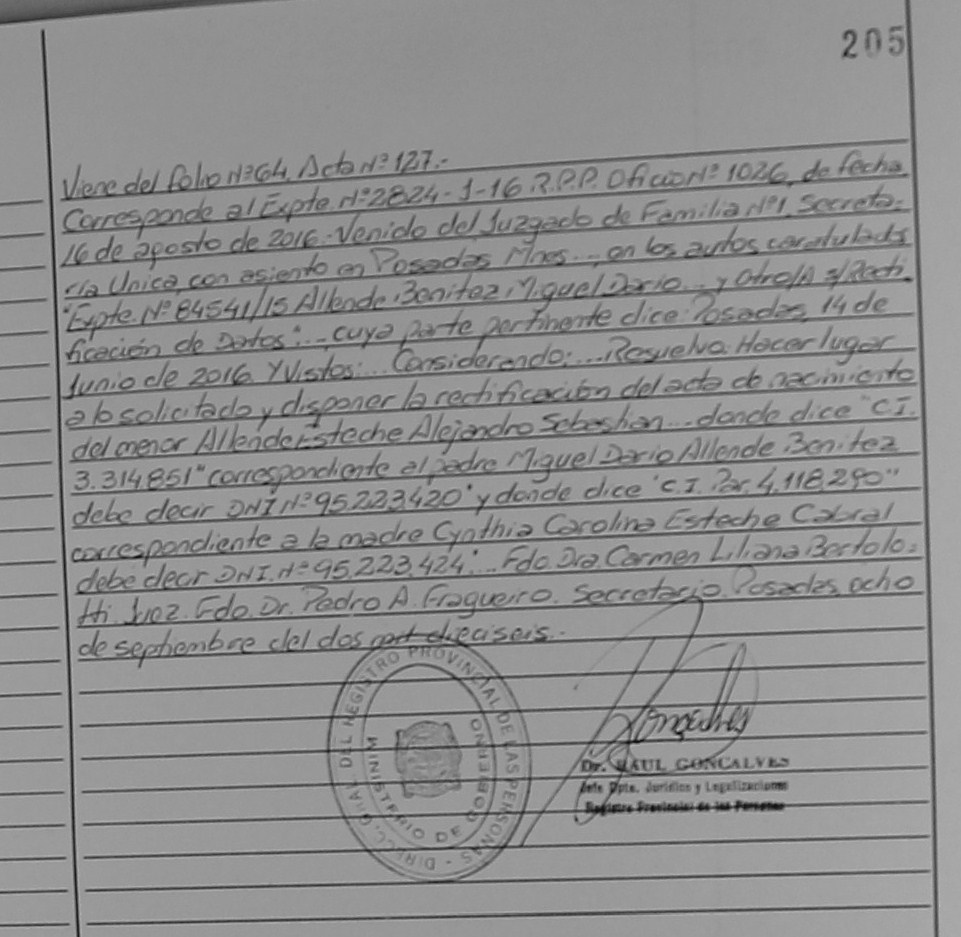 205
Viene del folio Nº 64, Acta Nº 127.-
Corresponde al Expte. Nº 2824-1-16 R.P.P. Oficio Nº 1026, de fecha
16 de agosto de 2016. Venido del Juzgado de Familia Nº 1, Secreta-
ria Unica con asiento en Posadas Mnes..., en los autos caratulads
"Expte. Nº 84541/15 Allende Benitez Miguel Dario... y Otro/A s/ Recti-
ficación de Datos"... cuya parte pertinente dice: Posadas, 14 de
Junio de 2016. Y Vistos:... Considerando:... Resuelvo: Hacer lugar
a lo solicitado y disponer la rectificación del acta de nacimiento
del menor Allende Esteche Alejandro Sebastian... donde dice "C.I.
3.314.851" correspondiente al padre Miguel Dario Allende Benitez
debe decir DNI Nº 95.223.420" y donde dice "C.I. Par. 4.118.290"
correspondiente a la madre Cynthia Carolina Esteche Cabral
debe decir DNI. Nº 95.223.424"... Fdo. Dra. Carmen Liliana Bertolo-
tti. Juez. Fdo. Dr. Pedro A. Fragueiro. Secretario. Posadas, ocho
de septiembre del dos dieciseis.-
DIREC. GRAL. DEL REGISTRO PROVINCIAL DE LAS PERSONAS -
MINISTERIO DE GOBIERNO
Goncalves
Dr. RAUL GONCALVES
Jefe Dpto. Jurídico y Legalizaciones
Registro Provincial de las Personas